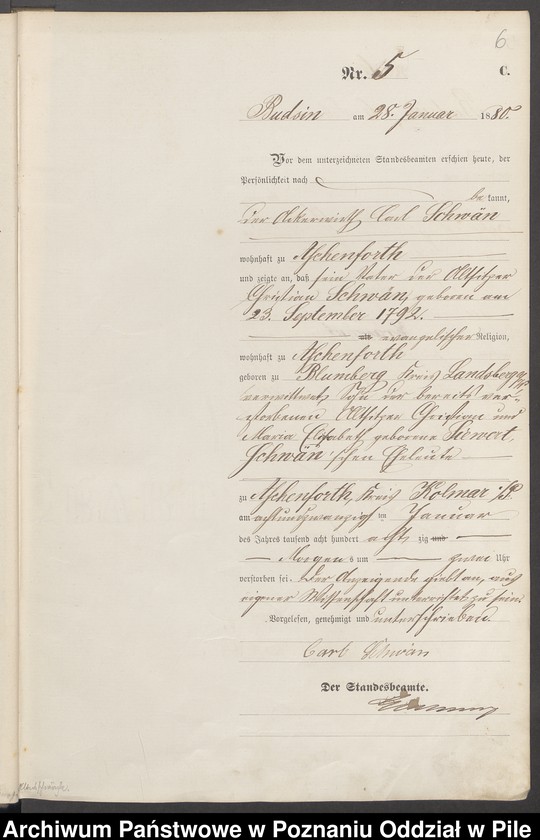 6
Nr. 5 C.
Budsin am 28. Januar 1880.
Vor dem unterzeichneten Standesbeamten erschien heute, der
Persönlichkeit nach
be kannt,
der Ackerwirth Carl Schwän
wohnhaft zu Aschenforth
und zeigte an, daß sein Vater der Altsitzer
Christian Schwän, geboren am
23. September 1792.
alt evangelischer Religion,
wohnhaft zu Aschenforth
geboren zu Blumberg Kreis Landsberg a/W
verwittwet, Sohn der bereits ver-
storbenen Altsitzer Christian und
Maria Elisabeth geborene Siewert,
Schwän'schen Eheleute
zu Aschenforth, Kreis Kolmar i/P.
am achtundzwanzigsten Januar
des Jahres tausend acht hundert acht zig und
Morgens um zwei Uhr
verstorben sei. Der Anzeigende giebt an, aus
eigener Wissenschaft unterrichtet zu sein.
Vorgelesen, genehmigt und unterschrieben.
Carl Schwän
Der Standesbeamte.
Archiwum Państwowe w Poznaniu Oddział w Pile